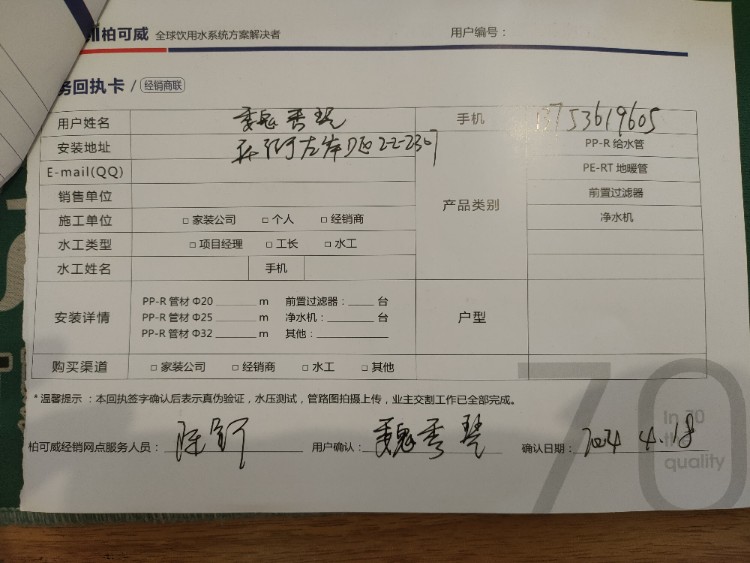 柏可威 全球饮用水系统方案解决者 用户编号：
务回执卡 / 经销商联
用户姓名 魏秀琴 手机 13753619605
安装地址 左岸D区2-2-2307 PP-R 给水管
E-mail(QQ) PE-RT 地暖管
销售单位 产品类别 前置过滤器
施工单位 □ 家装公司 □ 个人 □ 经销商 净水机
水工类型 □ 项目经理 □ 工长 □ 水工
水工姓名 手机
安装详情 PP-R 管材 Φ20 m 前置过滤器： 台 户型
PP-R 管材 Φ25 m 净水机： 台
PP-R 管材 Φ32 m 其他：
购买渠道 □ 家装公司 □ 经销商 □ 水工 □ 其他
*温馨提示：本回执签字确认后表示真伪验证，水压测试，管路图拍摄上传，业主交割工作已全部完成。
柏可威经销网点服务人员： 用户确认： 魏秀琴 确认日期： 2024 4.18
70
In 70
quality